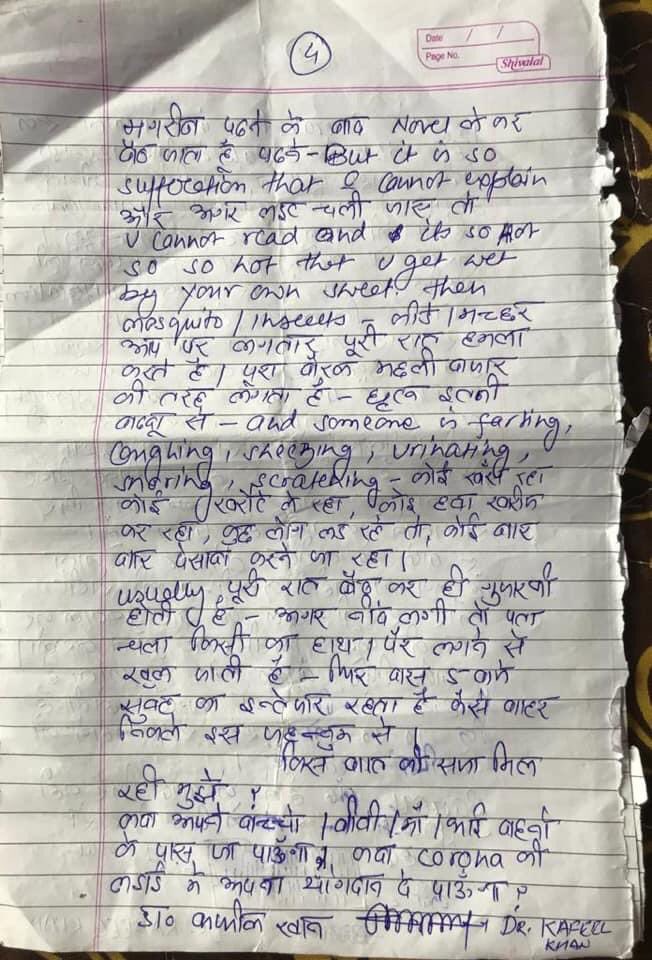 4
Date / /
Page No.
Shivalal
मगरीब पढने के बाद Novel ले कर
बैठ जाता हूँ पढने - But it is so
suffocation that I cannot explain
और अगर लाइट चली जाए तो
U cannot read and its so Hot
so so hot that u get wet
by your own sweet. then
Mosquito / insects - कीड़े / मच्छर
आप पर लगातार पूरी रात हमला
करते है। पूरा बैरक मछली बाजार
की तरह लगता है - घुटन इतनी
बदबू से - and someone is farting,
Coughing, sneezing, urinating,
snoring, scratching - कोई खाँस रहा
कोई खर्राटे ले रहा, कोई हवा खारिज
कर रहा, कुछ लोग लड रहे तो, कोई बार
बार पेसाब करने जा रहा।
usually पूरी रात बैठ कर ही गुजारनी
होती है - अगर नींद लगी तो पता
चला किसी का हाथ / पैर लगने से
खुल जाती है - फिर बास 5 बजे
सुबह का इन्तेजार रहता है कैसे बाहर
निकले इस जहन्नुम से।
किस बात की सजा मिल
रही मुझे ?
कब अपने बच्चो / बीवी / माँ / भाई बहनो
के पास जा पाऊँगा, कब corona की
लडाई मे अपना योगदान दे पाऊँगा ?
डा० कफील खान DR. KAFEEL
KHAN